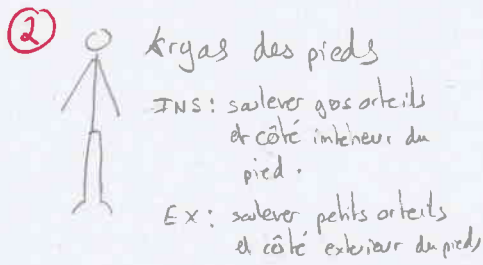 2
Kryas des pieds
INS: soulever gos orteils
et côté intérieur du
pied.
EX: soulever petits orteils
et côté exterieur du pieds